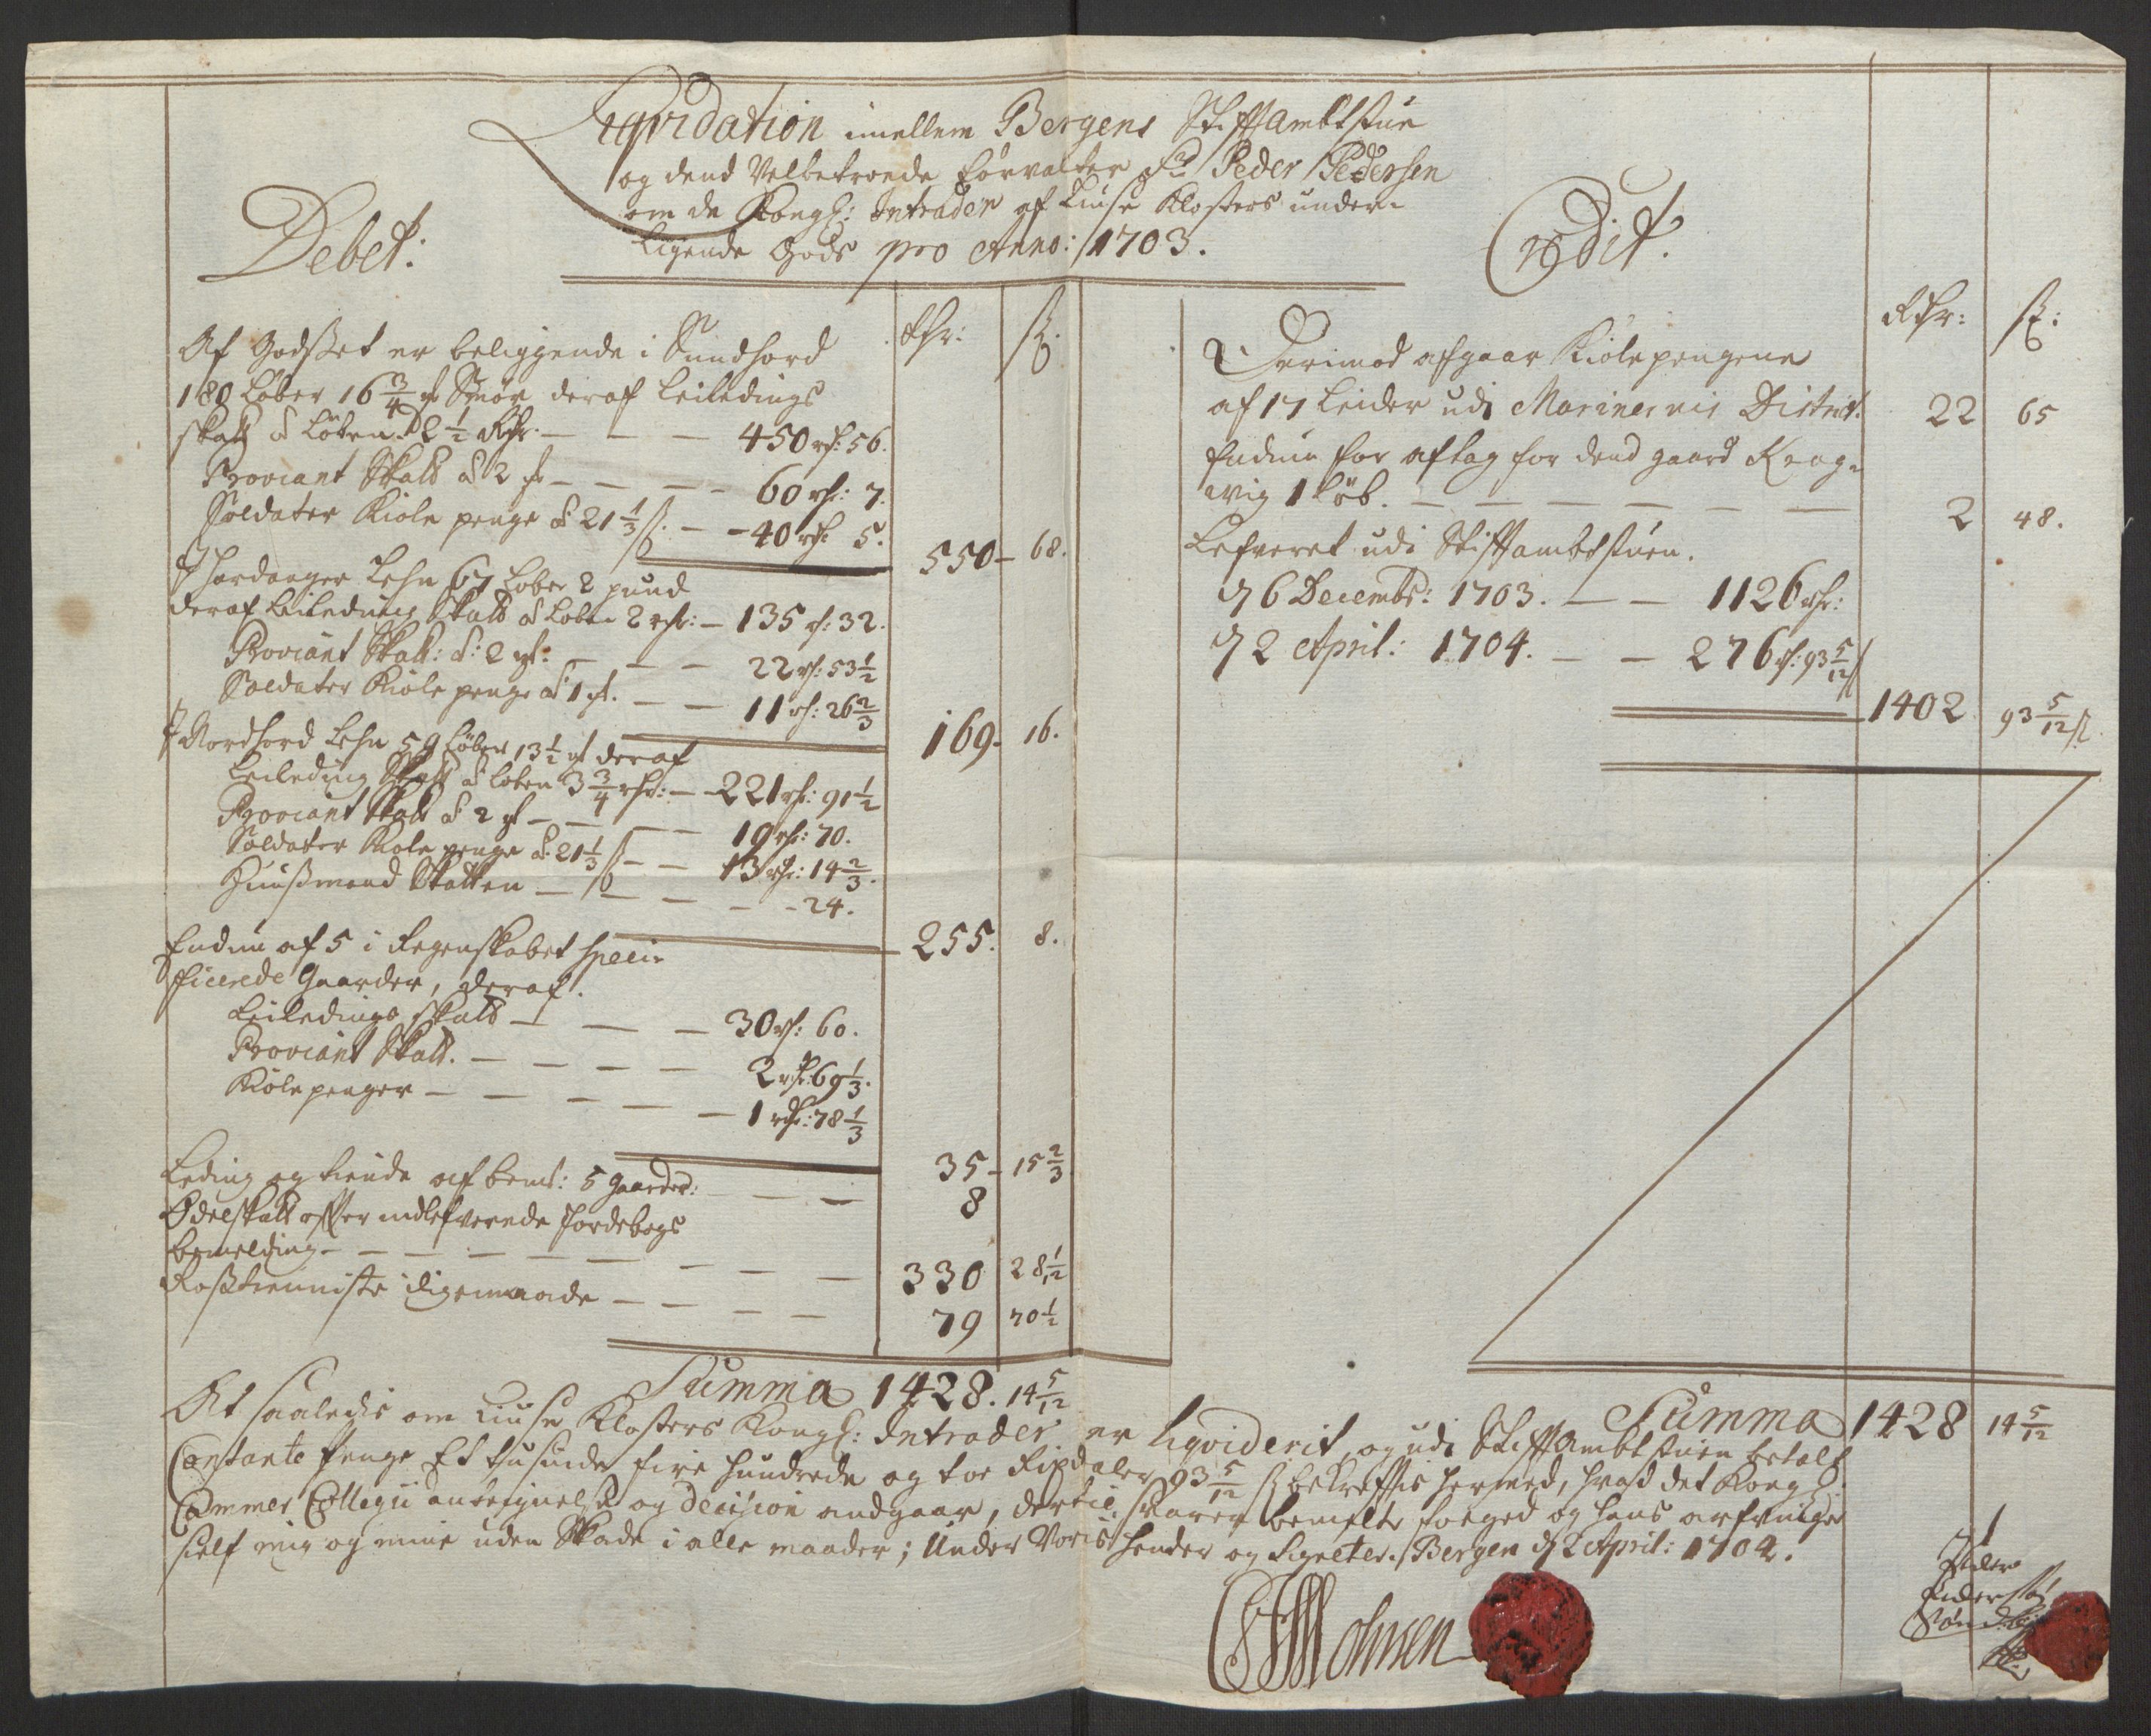 Liqvidation imellem Bergens Stifftambtstue
og dend Velbetroede Forvalter Sr Peder Pedersen
om de Kongl: Intrader af Liuse Klosters under-
liggende Gods pro Anno: 1703.
Debet:
Rhr: ß.
Af Godset er beliggende i Sundhord
180 Løber 16 3/4 Smør deraf Leilendings
skatt à Løben 2 1/2 Rhr. — — — 450 rhr: 56.
Proviant Skatt à 2 — — — — 60 rhr: 7.
Soldater Kiole penge à 21 1/3 ß. — — 40 rhr 5.
550 — 68.
I Hardanger Lehn 67 Løber 2 pund
deraf Leilending Skatt à Løben 2 rhr: — 135 rh: 32.
Proviant Skatt: à: 2 — — — 22 rh: 53 1/2
Soldater Kiole penge à 1 — — 11 rh: 26 2/3
169. 16.
I Nordhord Lehn 59 Løber 13 1/2 deraf
Leilending Skatt à Løben 3 3/4 rhr: — 221 rhr: 91 1/2
Proviant Skatt à 2 — — — 19 rhr: 70.
Soldater Kiole penge à 21 1/3 ß — — 13 rhr: 14 2/3.
Huusmand Skatten — — — — 24.
255. 8.
Endnu af 5 i Regenskabet speci-
ficerede Gaarder, deraf.
Leilendings skatt — — — 30 rh: 60.
Proviant Skatt. — — — — 2 rhr: 69 1/3.
Kiole penger — — — — — 1 rhr: 78 1/3
35 — 15 2/3
Leding og tiende af bemt: 5 gaarder: — — 8
Odelskatt effter indlefverede Jordebogs
bemelding — — — — — — — — 330 28 1/12
Rosstienniste ligemaade — — — — 79 70 1/2
Summa 1428. 14 5/12
Credit.
Rhr: ß:
Derimod afgaar Kiolepengene
af 17 Leider udi Marinernis District. 22 65
Endnu for aftag for dend gaard Reog-
wig 1 Løb. — — — — — — — 2 48.
Lefveret udi Stifftambtstuen.
d 6 Decembr: 1703. — — 1126 rhr:
d 2 April: 1704. — — 276 rh: 93 5/12 ß
1402 93 5/12 ß
Summa 1428 14 5/12
At saaledis om Liuse Klosters Kongl: Intrader er liqviderit, og udi Stifftambtstuen betalt
Contante Penge Et tusinde fire hundrede og toe Rixdaler 93 5/12 ß bekrefftis hermed, hvad det Kongl:
Cammer Collegii andtegnelse og Decision andgaar, dertil svarer bemelte foeged og hans arfvinger
sielf mig og mine uden Skade i alle maader; Under Voris hender og Signeter. Bergen d 2 April: 1704.